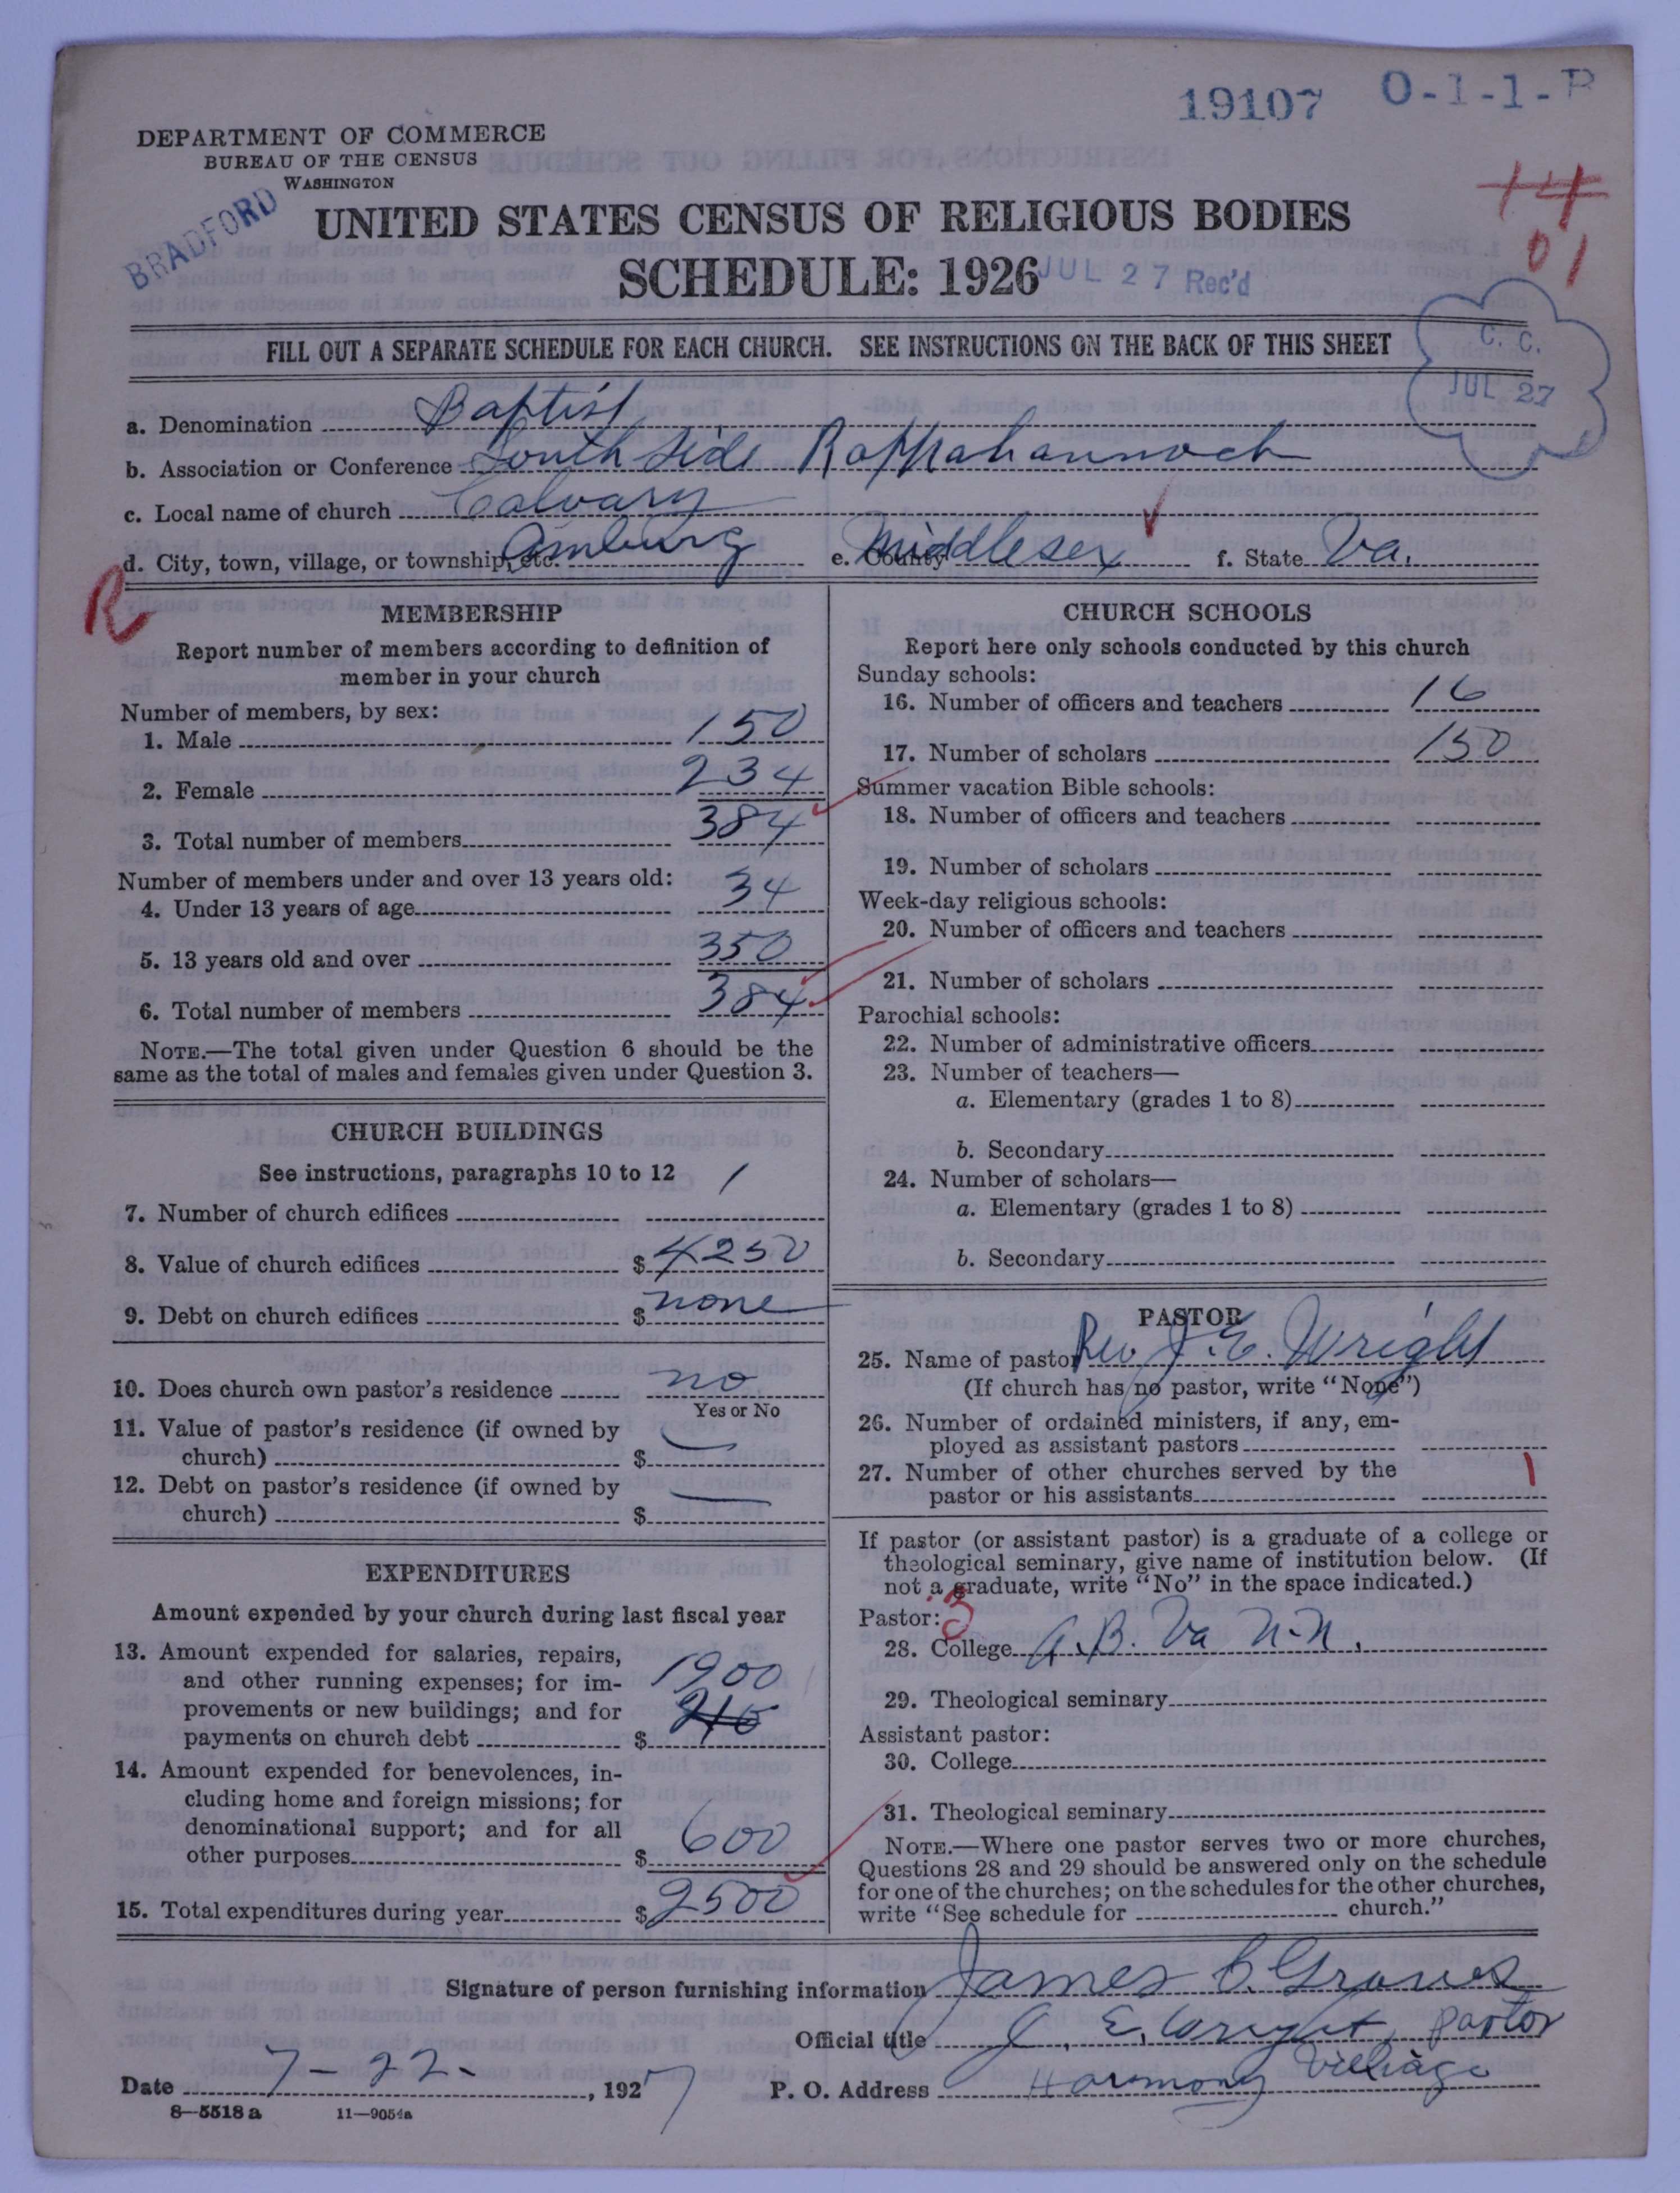 19107 O-1-1-B
DEPARTMENT OF COMMERCE
BUREAU OF THE CENSUS
WASHINGTON
BRADFORD
14
01
UNITED STATES CENSUS OF RELIGIOUS BODIES
SCHEDULE: 1926
JUL 27 Rec'd
C. C.
JUL 27
FILL OUT A SEPARATE SCHEDULE FOR EACH CHURCH. SEE INSTRUCTIONS ON THE BACK OF THIS SHEET
a. Denomination Baptist
b. Association or Conference South side Rappahannock
c. Local name of church Calvary
d. City, town, village, or township, etc. Amburg e. County Middlesex f. State Va.
R
MEMBERSHIP
Report number of members according to definition of
member in your church
Number of members, by sex:
1. Male 150
2. Female 234
3. Total number of members 384
Number of members under and over 13 years old:
4. Under 13 years of age 34
5. 13 years old and over 350
6. Total number of members 384
NOTE.—The total given under Question 6 should be the
same as the total of males and females given under Question 3.
CHURCH BUILDINGS
See instructions, paragraphs 10 to 12
7. Number of church edifices 1
8. Value of church edifices $ 4250
9. Debt on church edifices $ none
10. Does church own pastor's residence no
Yes or No
11. Value of pastor's residence (if owned by
church) $ —
12. Debt on pastor's residence (if owned by
church) $ —
EXPENDITURES
Amount expended by your church during last fiscal year
13. Amount expended for salaries, repairs,
and other running expenses; for im-
provements or new buildings; and for
payments on church debt $ 1900
14. Amount expended for benevolences, in-
cluding home and foreign missions; for
denominational support; and for all
other purposes $ 600
15. Total expenditures during year $ 2500
CHURCH SCHOOLS
Report here only schools conducted by this church
Sunday schools:
16. Number of officers and teachers 16
17. Number of scholars 150
Summer vacation Bible schools:
18. Number of officers and teachers
19. Number of scholars
Week-day religious schools:
20. Number of officers and teachers
21. Number of scholars
Parochial schools:
22. Number of administrative officers
23. Number of teachers—
a. Elementary (grades 1 to 8)
b. Secondary
24. Number of scholars—
a. Elementary (grades 1 to 8)
b. Secondary
PASTOR
25. Name of pastor Rev. J. E. Wright
(If church has no pastor, write "None")
26. Number of ordained ministers, if any, em-
ployed as assistant pastors
27. Number of other churches served by the
pastor or his assistants 1
If pastor (or assistant pastor) is a graduate of a college or
theological seminary, give name of institution below. (If
not a graduate, write "No" in the space indicated.)
Pastor: 3
28. College A.B. Va N.N.
29. Theological seminary
Assistant pastor:
30. College
31. Theological seminary
NOTE.—Where one pastor serves two or more churches,
Questions 28 and 29 should be answered only on the schedule
for one of the churches; on the schedules for the other churches,
write "See schedule for church."
Signature of person furnishing information James C. Graves
Official title J. E. Wright, pastor
Date 7-22-, 1927 P. O. Address Harmony Village
8-5518 a 11-9054a